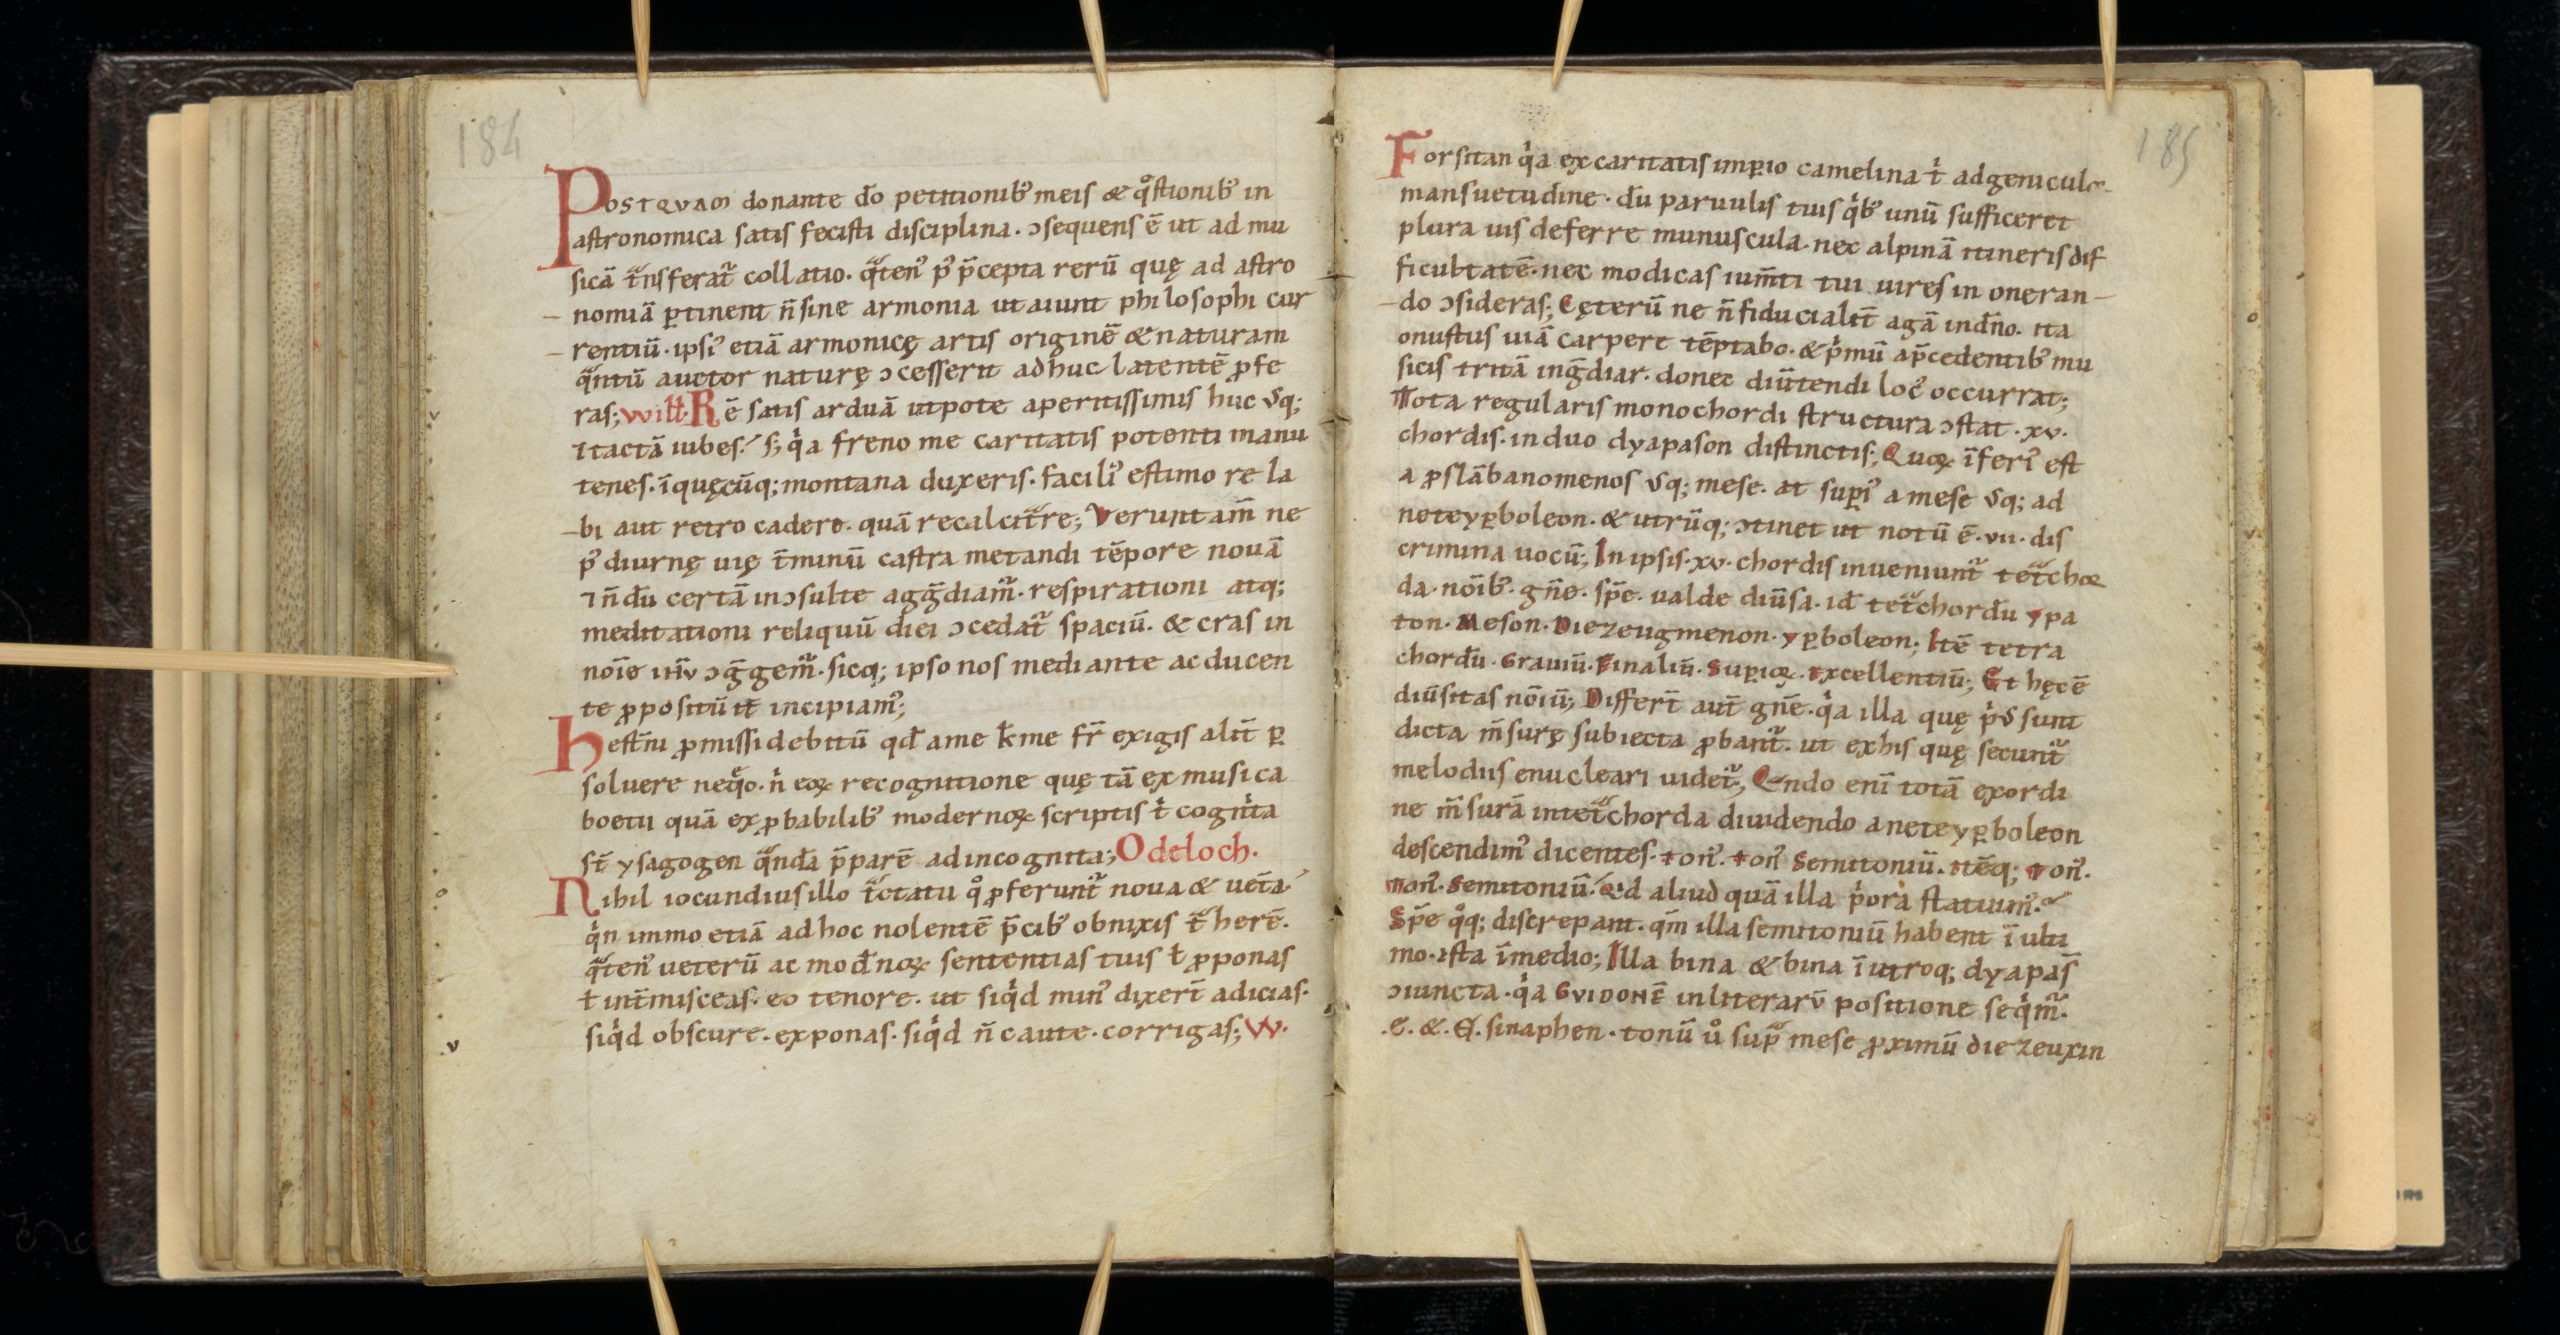 184
Postquam donante dō petitionib' meis & q̊stionib' in
astronomica satis fecisti disciplina. ɔsequens ē ut ad mu
sicā t̄nsferat᷑ collatio. q̄ten' p' p̄cepta rerū quę ad astro
nomiā ꝑtinent n̄ sine armonia ut aiunt philosophi cur
rentiū. ipsi' etiā armonicę artis originē & naturam
q̄ntū auctor naturę ɔcesserit adhuc latentē ꝓfe
ras; Will̄. Rē satis arduā utpote apertissimis huc usq;
ītactā iubes. s; qͥa freno me caritatis potenti manu
tenes. ī quęcūq; montana duxeris. facili' estimo re la
bi aut retro cadere. quā recalcit̄re; Veruntam̄ ne
p' diurnę uię t̄minū castra metandi tēpore nouā
⁊ n̄dū certā inɔsulte agḡdiam᷑. respirationi atq;
meditationi reliquū diei ɔcedat᷑ spaciū. & cras in
noīe ɔḡgem᷑. sicq; ipso nos mediante ac ducen
te ꝓpositū it̄ incipiam';
Hest̄ni ꝓmissi debitū qd̄ a me k̄me fr̄ exigis alit̄ ꝑ
soluere neq̊o. nͥ eoꝝ recognitione quę tā ex musica
boetii quā ex ꝓbabilib' modernoꝝ scriptis tͥ cognita
st̄ ysagogen q̄ndā p̄parē ad incognita; Odeloch.
Nihil iocundius illo t̄ctatu q̊ ꝓferunt᷑ noua & uet̄a.
qͥn immo etiā ad hoc nolentē p̄cib' obnixis t̄herē.
q̄ten' ueterū ac mod̄noꝝ sententias tuis ł ꝓponas
ł int̄misceas. eo tenore. ut siqͥd min' dixert̄ adicias.
siqͥd obscure. exponas. siqͥd n̄ caute. corrigas; W.
185
Forsitan qͥa ex caritatis imꝑio camelina tͥ adgeniculor
mansuetudine. dū paruulis tuis qͥb' unū sufficeret
plura uis deferre munuscula. nec alpinā itineris dif
ficultatē. nec modicas ium̄ti tui uires in oneran
do ɔsideras; Cęterū ne n̄ fiducialit̄ agā in dn̄o. ita
onustus uiā carpere tēptabo. & pͥmū a p̄cedentib' mu
sicis tritā inḡdiar. donec diūtendi loc' occurrat;
Tota regularis monochordi structura ɔstat. xv.
chordis. in duo dyapason distinctis; Quoꝝ īferi' est
a ꝓslābanomenos usq; mese. at suꝑi' a mese usq; ad
neteyꝑboleon. & utrūq; ɔtinet ut notū ē. vii. dis
crimina uocū; In ipsis. xv. chordis inueniunt᷑ tet̄chor
da. noīb'. gn̄e. sp̄e. ualde diūsa. id tet̄chordū ypa
ton. Meson. Diezeugmenon. yꝑboleon; Itē tetra
chordū. Grauiū. Finaliū. Suꝑioꝝ. Excellentiū; Et hęc ē
diūsitas nōiū; Differt̄ aut̄ gn̄e. qͥa illa quę pͥus sunt
dicta m̄surę subiecta ꝓbant᷑. ut ex his quę secunt᷑
melodiis enucleari uidet᷑; Q̄ndo enī totā exordi
ne m̄surā in tet̄chorda diuidendo a neteyꝑboleon
descendim' dicentes. ton'. ton' Semitoniū. itēq; ton'.
ton'. Semitoniū. Qͥd aliud quā illa pͥora statuim'.
Sp̄e q̊q; discrepant. qm̄ illa semitoniū habent ī ulti
mo. ista ī medio; Illa bina & bina ī utroq; dyapas̄
ɔiuncta. qͥa GVIDONĒ in literarū positione seqͥm᷑.
sinaphen. tonū ů sup̄ mese ꝓximū diezeuxin